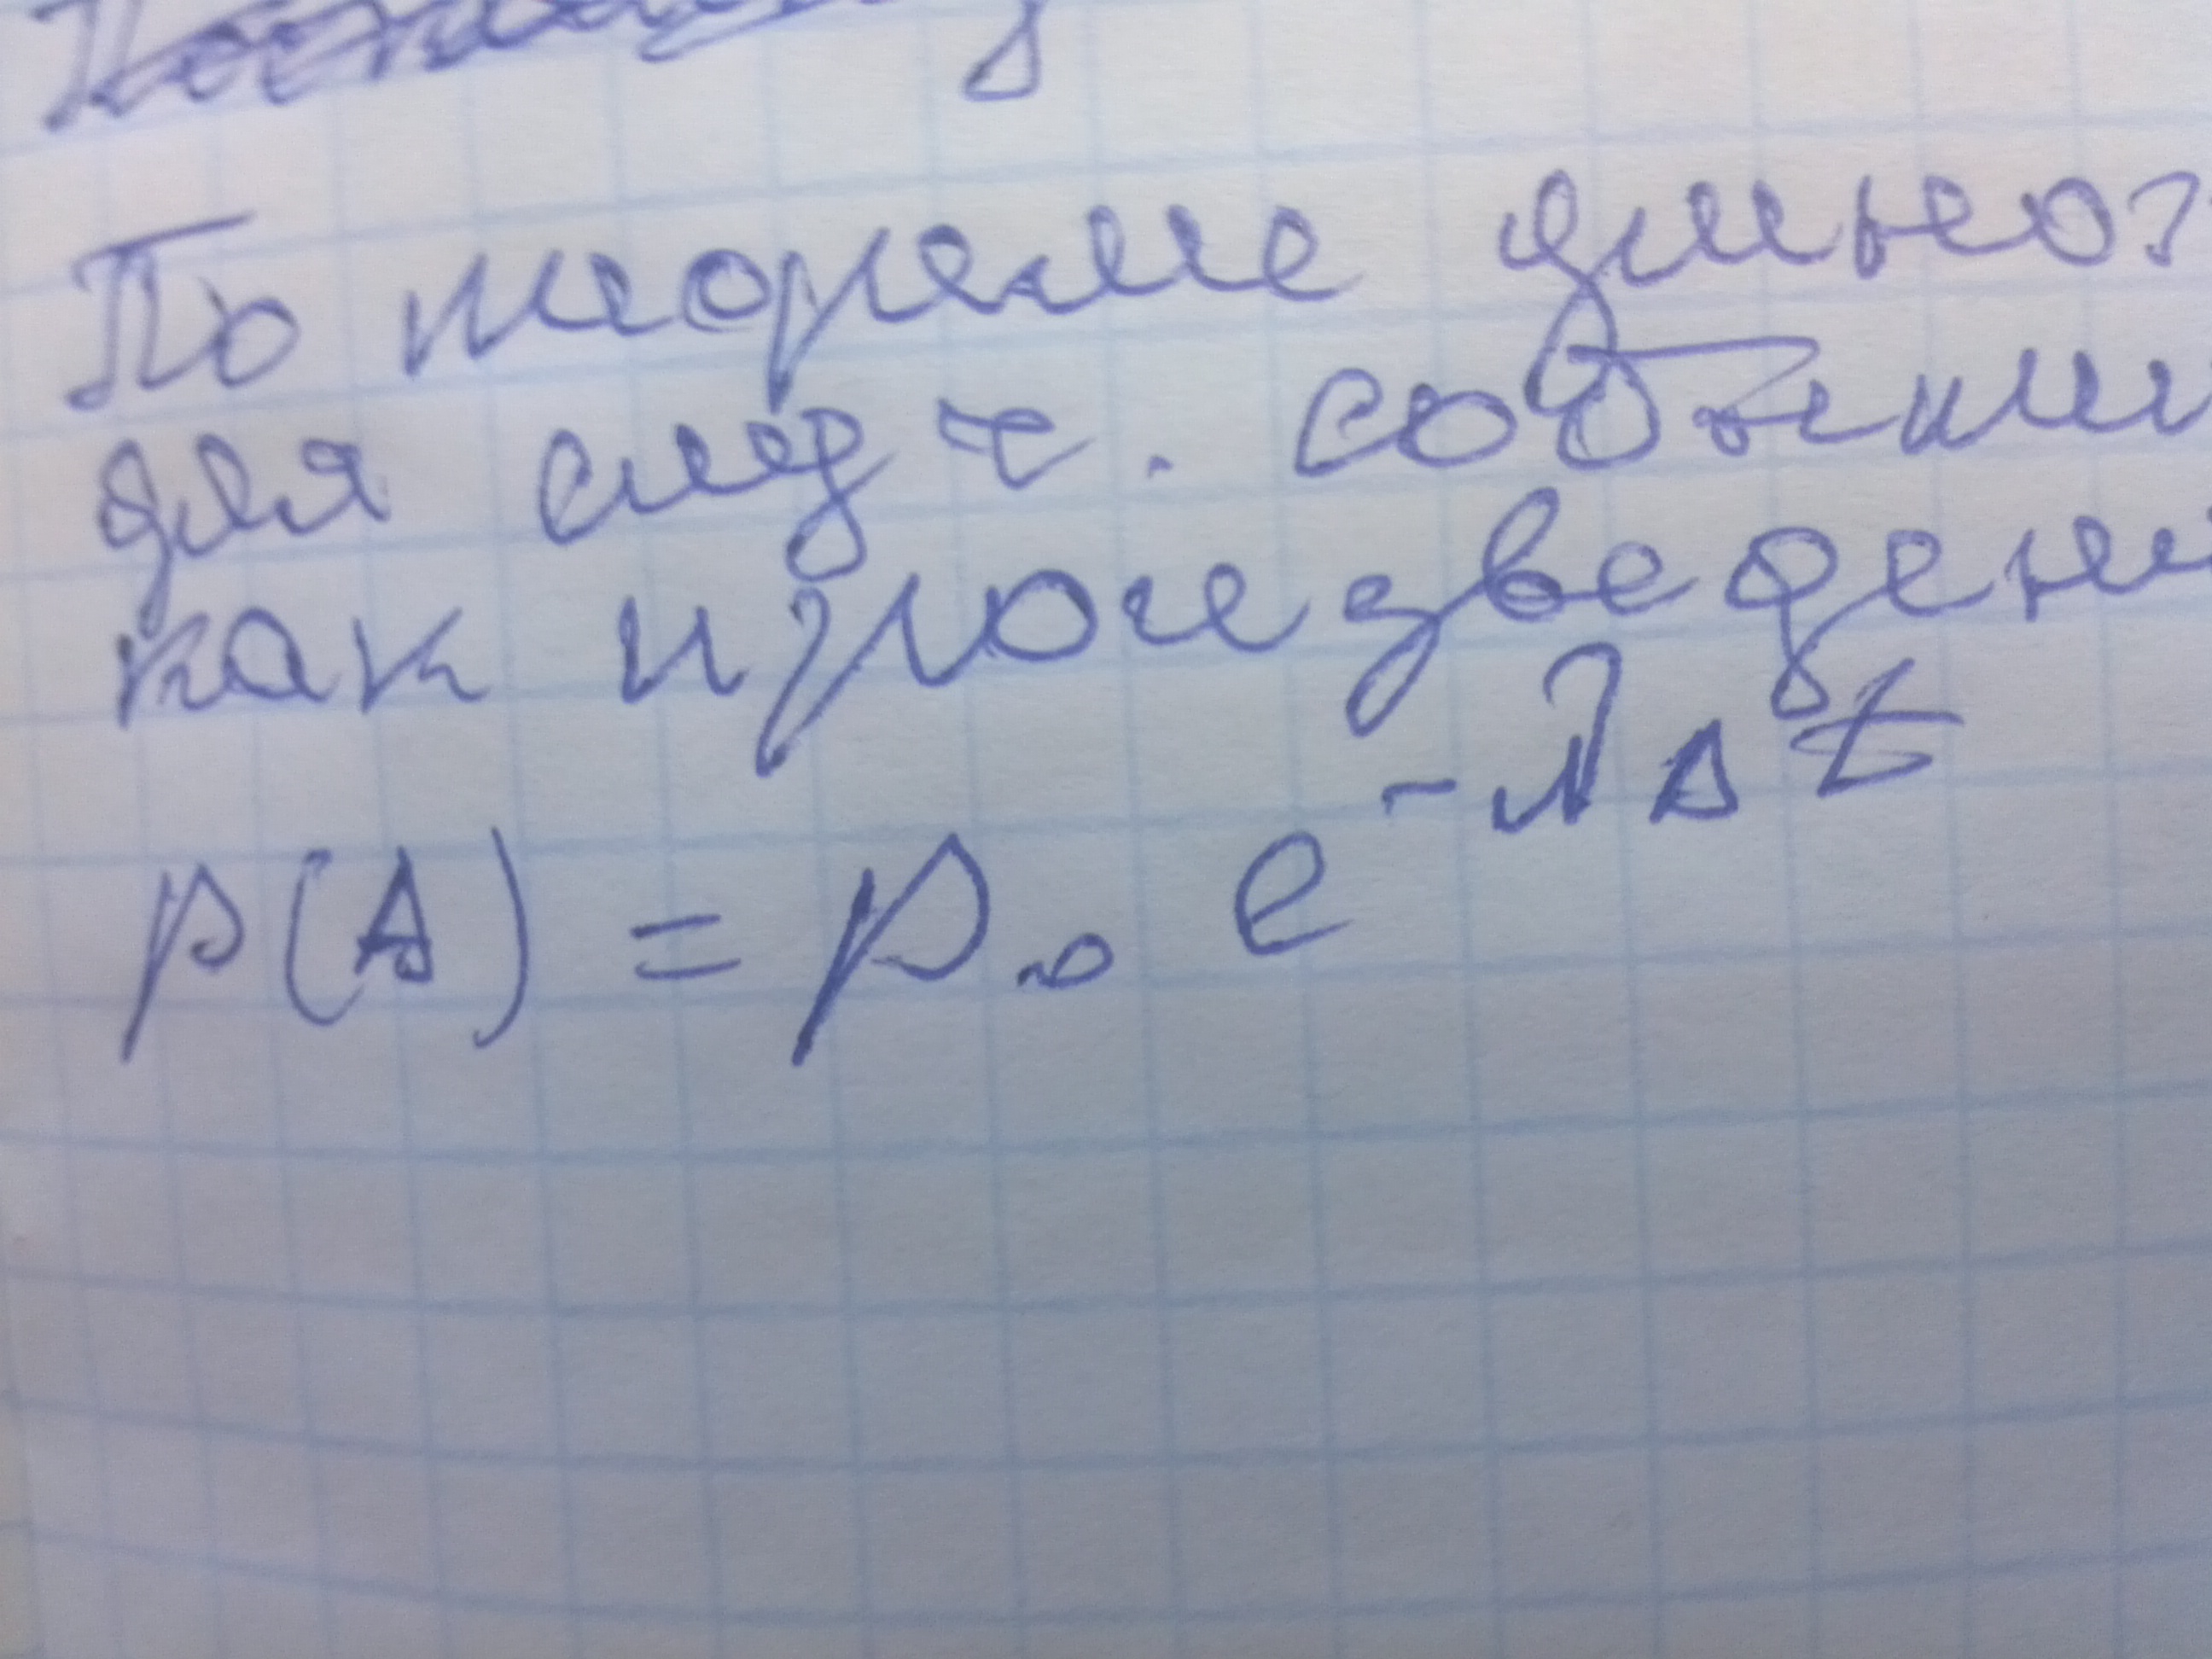 По теореме умнож
для случ. событи
как произведени
p(A) = p₀ e^{-λΔt}